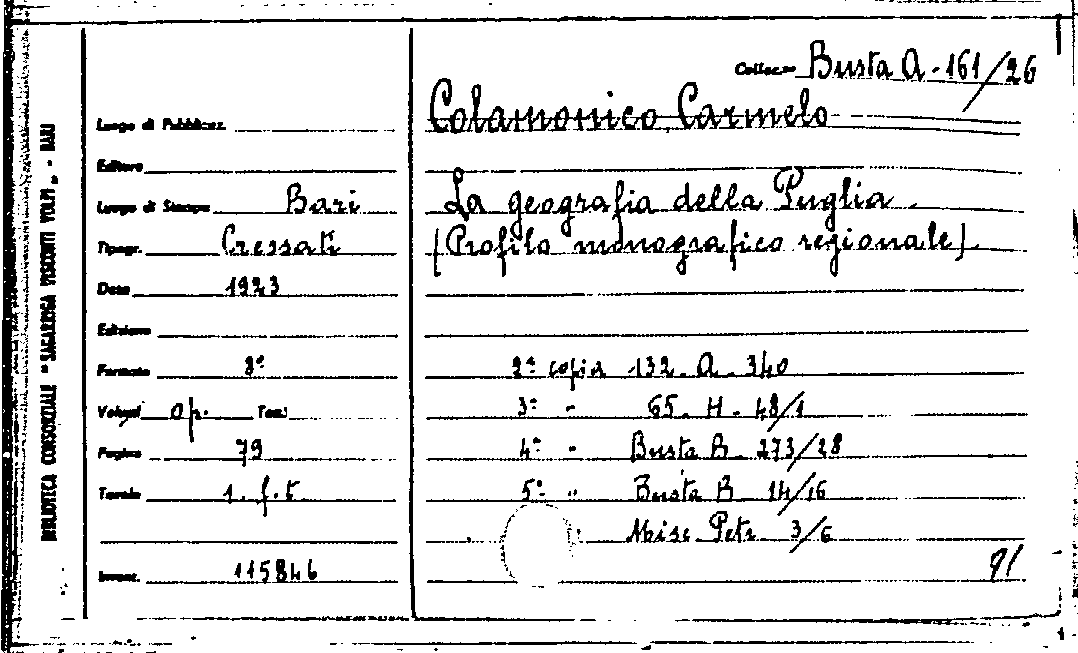 BIBLIOTECA CONSORZIALE "SAGARRIGA VISCONTI VOLPI" - BARI
Colloc.ne Busta A - 161/26
Colamonico Carmelo
La geografia della Puglia.
(Profilo monografico regionale).
Luogo di Pubblicaz.
Editore
Luogo di Stampa Bari
Tipogr. Cressati
Data 1923
Edizione
Formato 8°
Volumi Op. Tomi
Pagine 79
Tavole 1. f.t.
Invent. 115846
2ª copia 132. A. 340
3ª " 65. H. 48/1
4ª " Busta B. 273/28
5ª " Busta B 14/16
" Misc. Petr. 3/6
91